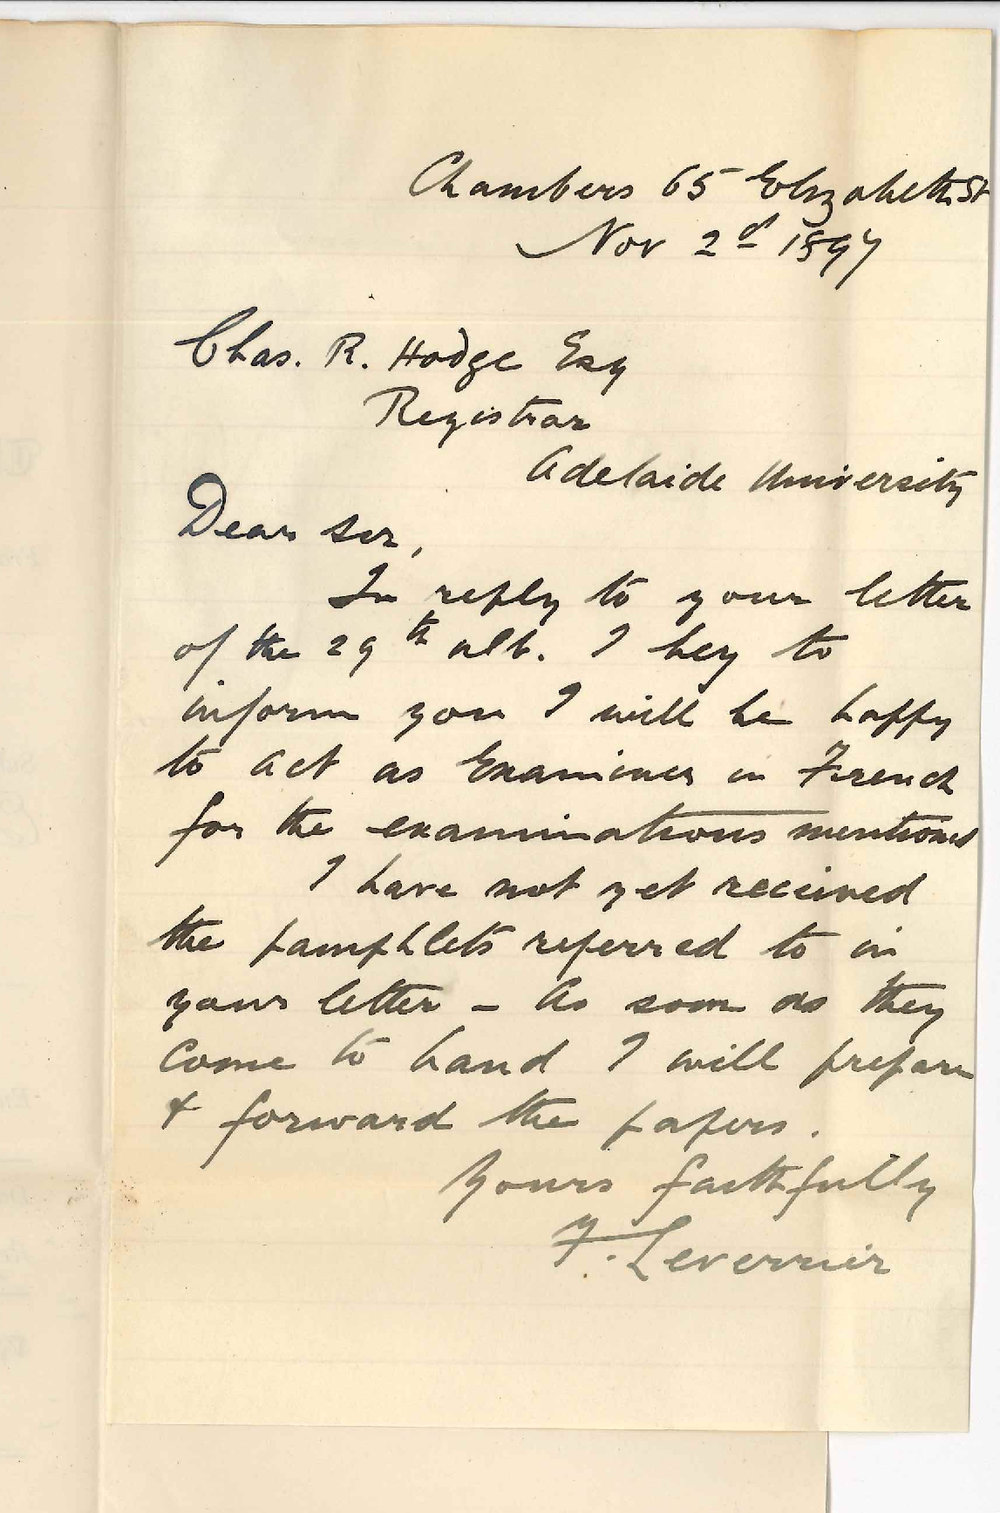 Chambers 65 Elizabeth St
Nov 2d 1897
Chas. R. Hodge Esq
Registrar
Adelaide University
Dear Sir,
In reply to your letter
of the 29th ult. I beg to
inform you I will be happy
to act as Examiner in French
for the examinations mentioned
I have not yet received
the pamphlets referred to in
your letter - As soon as they
come to hand I will prepare
& forward the papers.
Yours faithfully
F. Leverrier